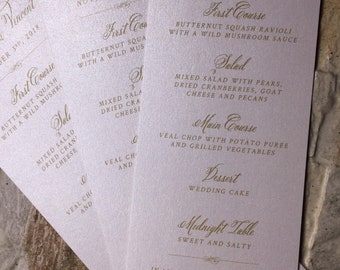 First Course
BUTTERNUT SQUASH RAVIOLI
WITH A WILD MUSHROOM SAUCE
Salad
MIXED SALAD WITH PEARS,
DRIED CRANBERRIES, GOAT
CHEESE AND PECANS
Main Course
VEAL CHOP WITH POTATO PUREE
AND GRILLED VEGETABLES
Dessert
WEDDING CAKE
Midnight Table
SWEET AND SALTY
First Course
BUTTERNUT SQUASH
WITH A WILD MUSH
Salad
MIXED SALAD
DRIED CRAN
CHEESE
Vincent
First Course
BUTTERNUT SQUASH
WITH A WILD
MIXED SALAD
DRIED CRAN
CHEESE